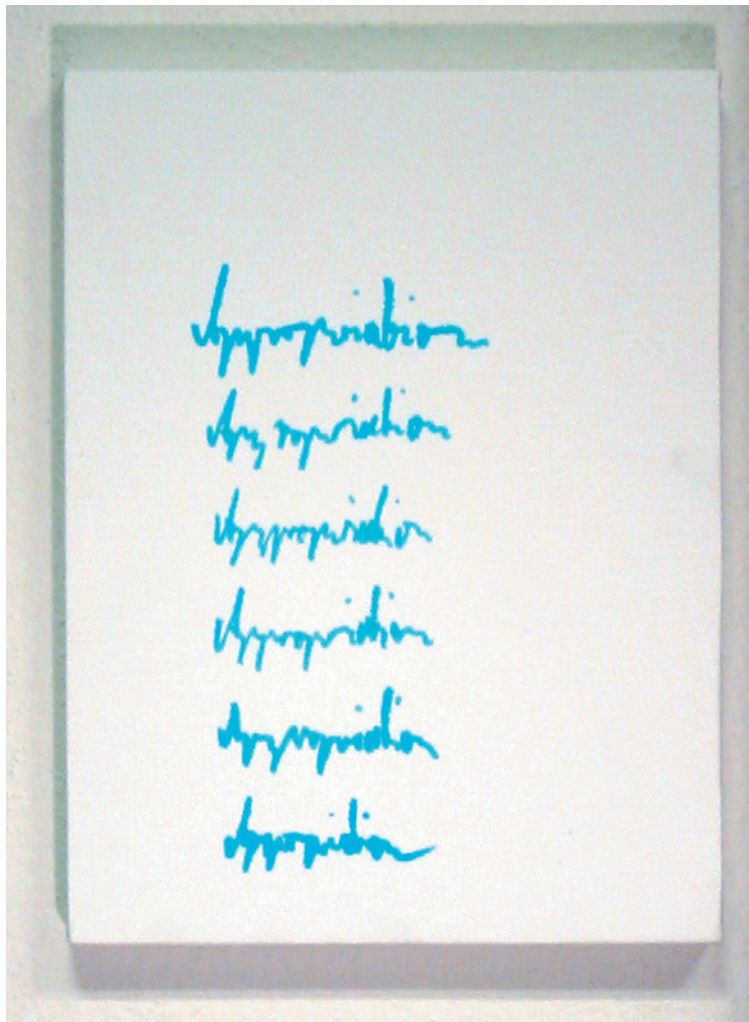 Appropriation
Appropriation
Appropriation
Appropriation
Appropriation
Appropriation